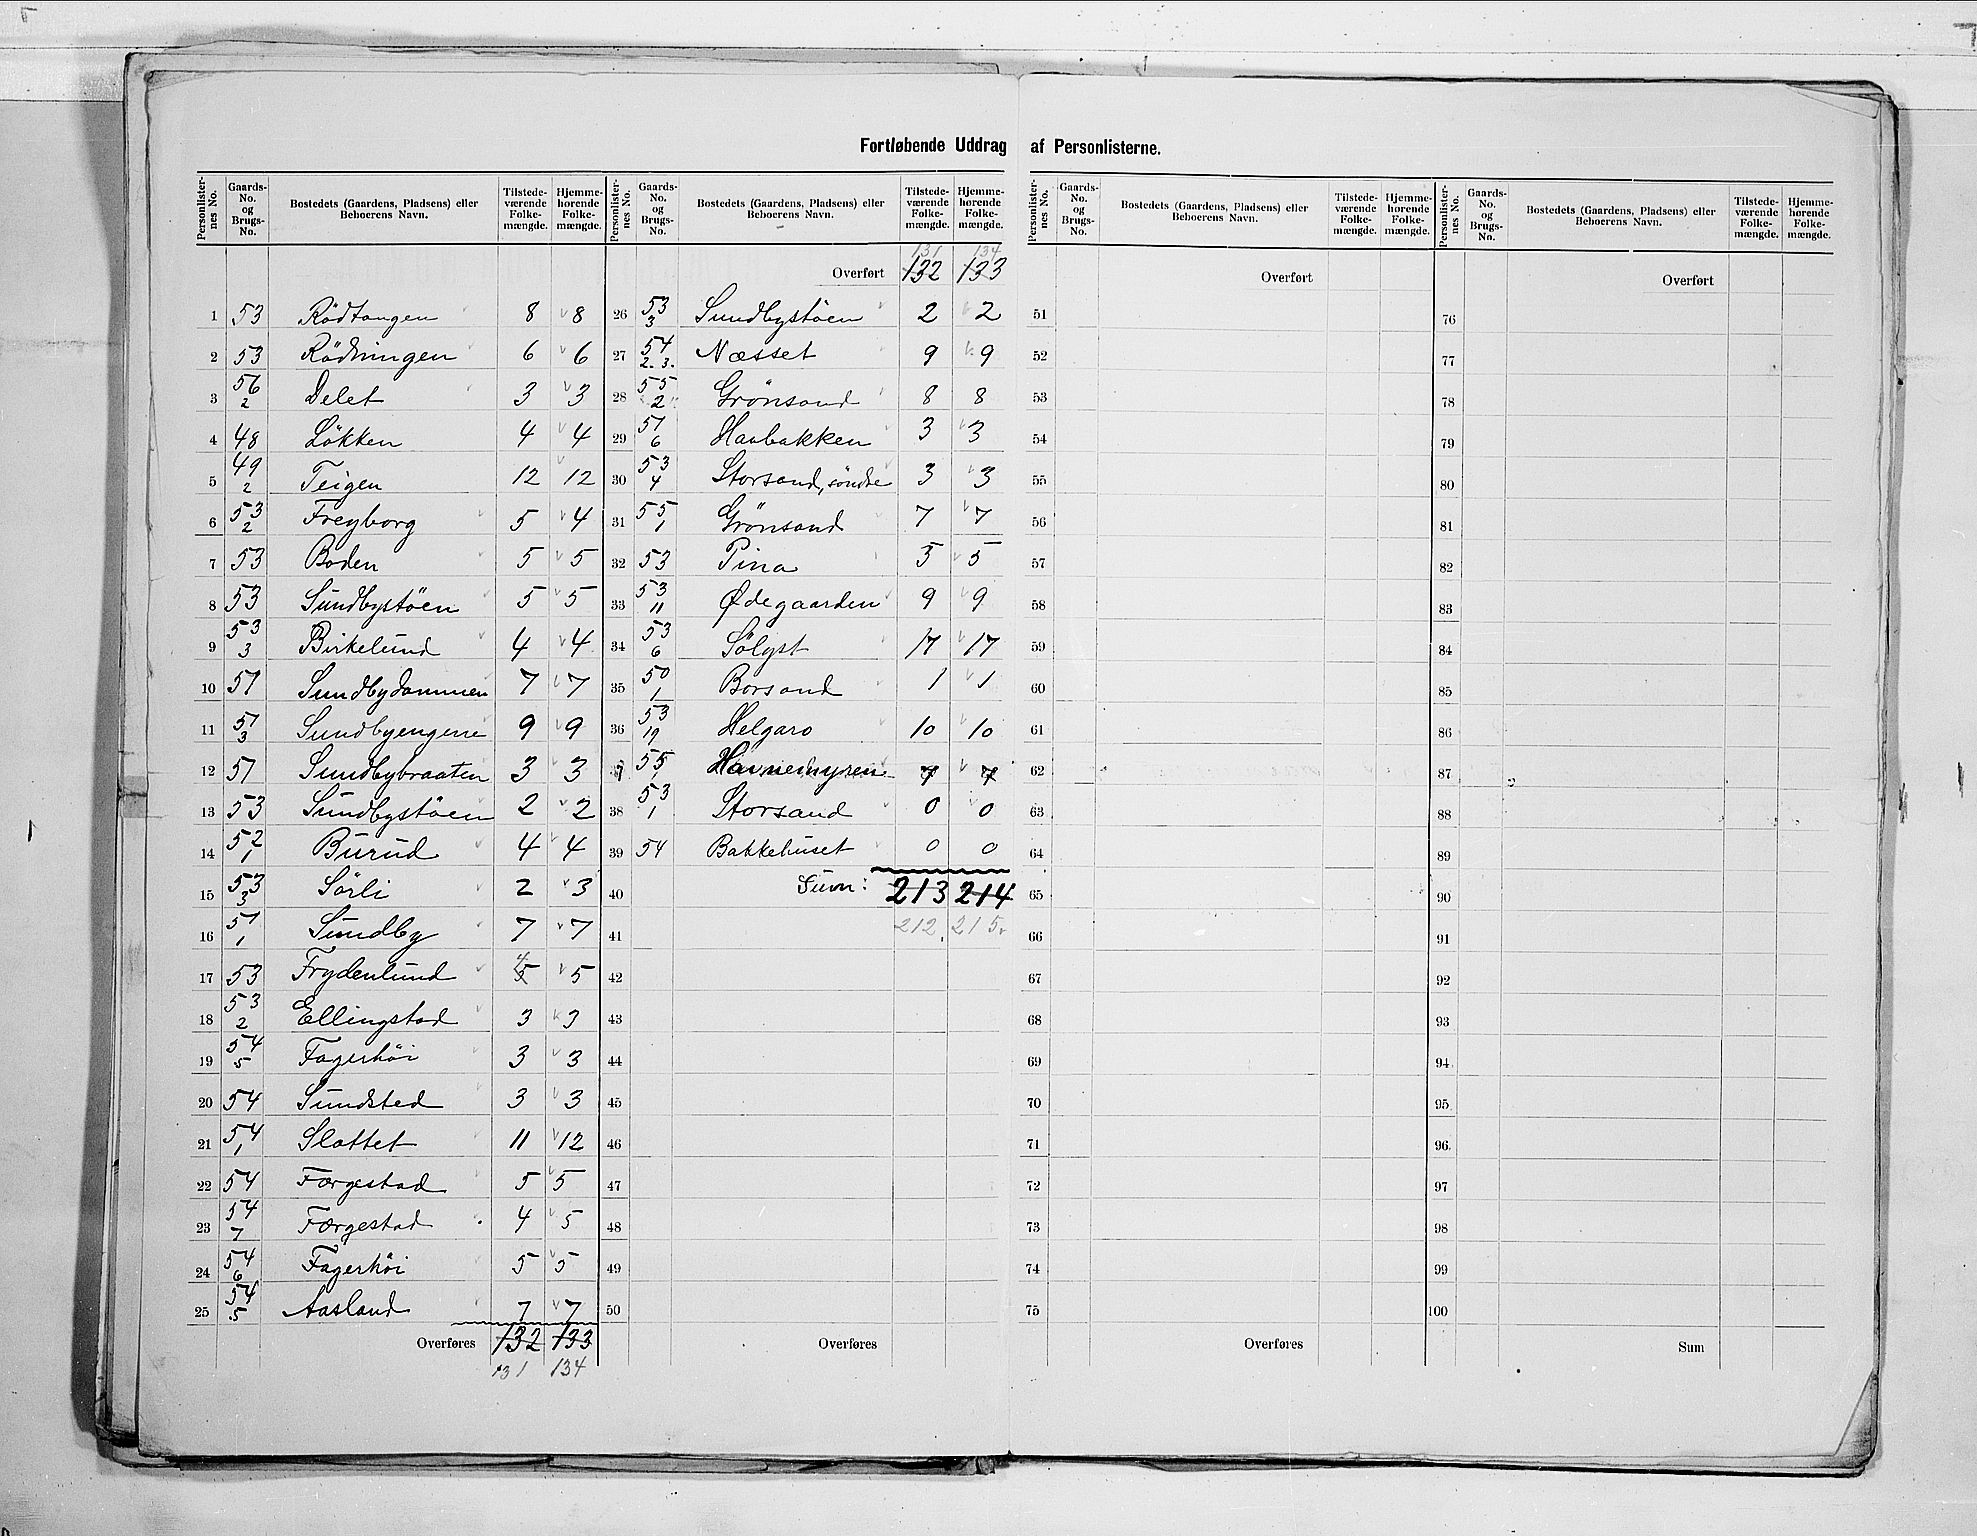 Fortløbende Uddrag af Personlisterne.
Personlisternes No. | Gaards-No. og Brugs-No. | Bostedets (Gaardens, Pladsens) eller Beboerens Navn. | Tilstedeværende Folkemængde. | Hjemmehørende Folkemængde.
1 53 Rödtangen 8 8
2 53 Rödningen 6 6
3 56/2 Delet 3 3
4 48 Løkken 4 4
5 49/2 Teigen 12 12
6 53/2 Freyborg 5 4
7 53 Boden 5 5
8 53 Sundbystöen 5 5
9 53/3 Birkelund 4 4
10 51 Sundbydammen 7 7
11 51/3 Sundbyengene 9 9
12 51 Sundbybraaten 3 3
13 53 Sundbystöen 2 2
14 52/1 Burud 4 4
15 53/3 Sörli 2 3
16 51/1 Sundby 7 7
17 53 Frydenlund 5 4 5
18 53/2 Ellingstad 3 3
19 54/5 Fagerhöi 3 3
20 54 Sundsted 3 3
21 54/1 Slottet 11 12
22 54 Færgestad 5 5
23 54/7 Færgestad 4 5
24 54/6 Fagerhöi 5 5
25 54/5 Aasland 7 7
Overføres 132 133
131 134
Personlisternes No. | Gaards-No. og Brugs-No. | Bostedets (Gaardens, Pladsens) eller Beboerens Navn. | Tilstedeværende Folkemængde. | Hjemmehørende Folkemængde.
131 134
Overført 132 133
26 53/3 Sundbystöen 2 2
27 54/2.3. Næsset 9 9
28 55/2 Grönsand 8 8
29 51/6 Haabakken 3 3
30 53/4 Storsand, söndre 3 3
31 55/1 Grönsand 7 7
32 53 Pina 5 5
33 53/11 Ødegaarden 9 9
34 53/6 Sölyst 17 17
35 50/1 Borsand 1 1
36 53/19 Helgaro 10 10
37 55/1 Havnemyren 7 7
38 53/1 Storsand 0 0
39 54 Bakkehuset 0 0
40 Sum: 213 214
41 212. 215.
42
43
44
45
46
47
48
49
50
Overføres
Personlisternes No. | Gaards-No. og Brugs-No. | Bostedets (Gaardens, Pladsens) eller Beboerens Navn. | Tilstedeværende Folkemængde. | Hjemmehørende Folkemængde.
Overført
51
52
53
54
55
56
57
58
59
60
61
62
63
64
65
66
67
68
69
70
71
72
73
74
75
Overføres
Personlisternes No. | Gaards-No. og Brugs-No. | Bostedets (Gaardens, Pladsens) eller Beboerens Navn. | Tilstedeværende Folkemængde. | Hjemmehørende Folkemængde.
Overført
76
77
78
79
80
81
82
83
84
85
86
87
88
89
90
91
92
93
94
95
96
97
98
99
100
Sum